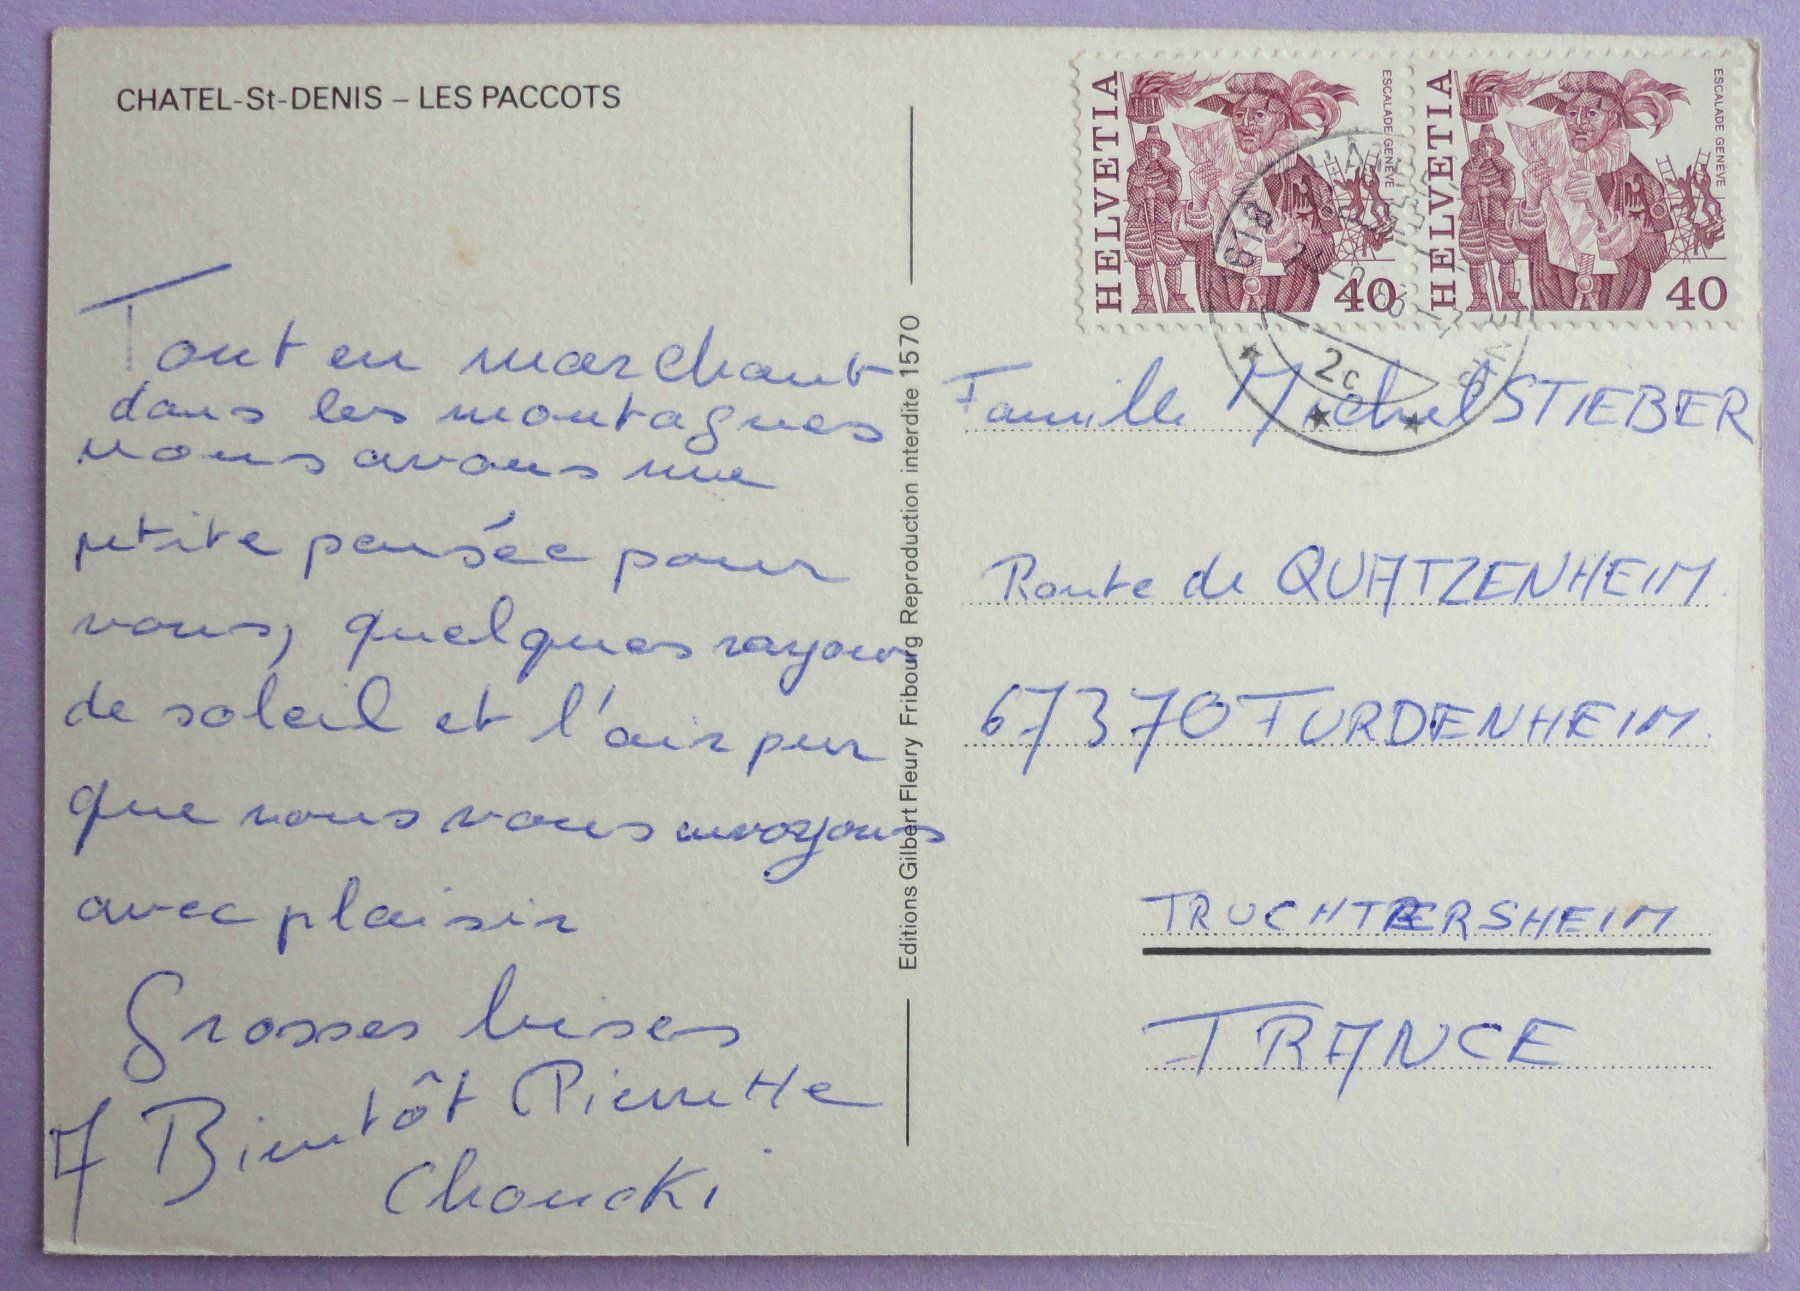 CHATEL-St-DENIS – LES PACCOTS
Tout en marchant
dans les montagnes
nous avons une
petite pensée pour
vous, quelques rayons
de soleil et l'air pur
que nous vous envoyons
avec plaisir
Grosses bises
A Bientôt Pierrette
Choucki
Editions Gilbert Fleury Fribourg Reproduction interdite 1570
HELVETIA
ESCALADE GENÈVE
40
HELVETIA
ESCALADE GENÈVE
40
2c
Famille Michel STIEBER
Route de QUATZENHEIM
67370 FURDENHEIM.
TRUCHTERSHEIM
FRANCE